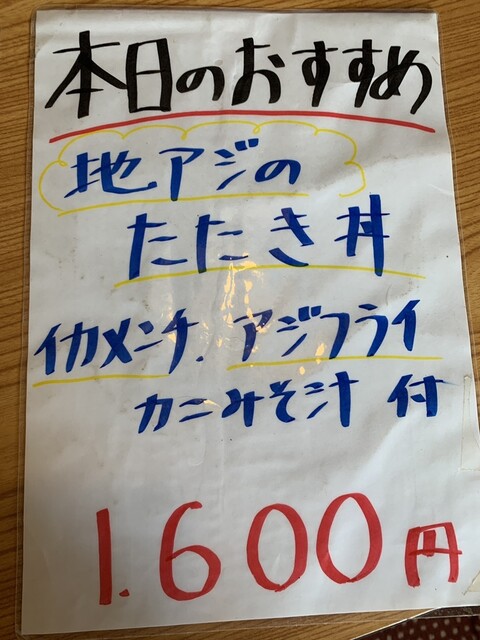 本日のおすすめ
地アジの
たたき丼
イカメンチ、アジフライ
カニみそ汁 付
1.600円